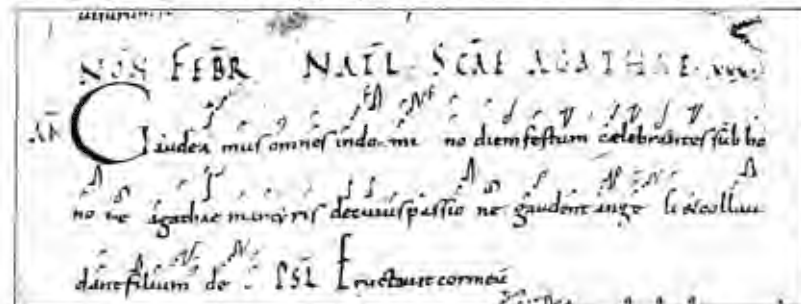 NON FEBR NATL SCAE AGATHAE
AN Gaudea mus omnes indo mi no diem festum caelebrantes sub ho
no re agathae martyris decuius passio ne gaudent ange li et collau
dant filium de i PSL Eructauit cor meū